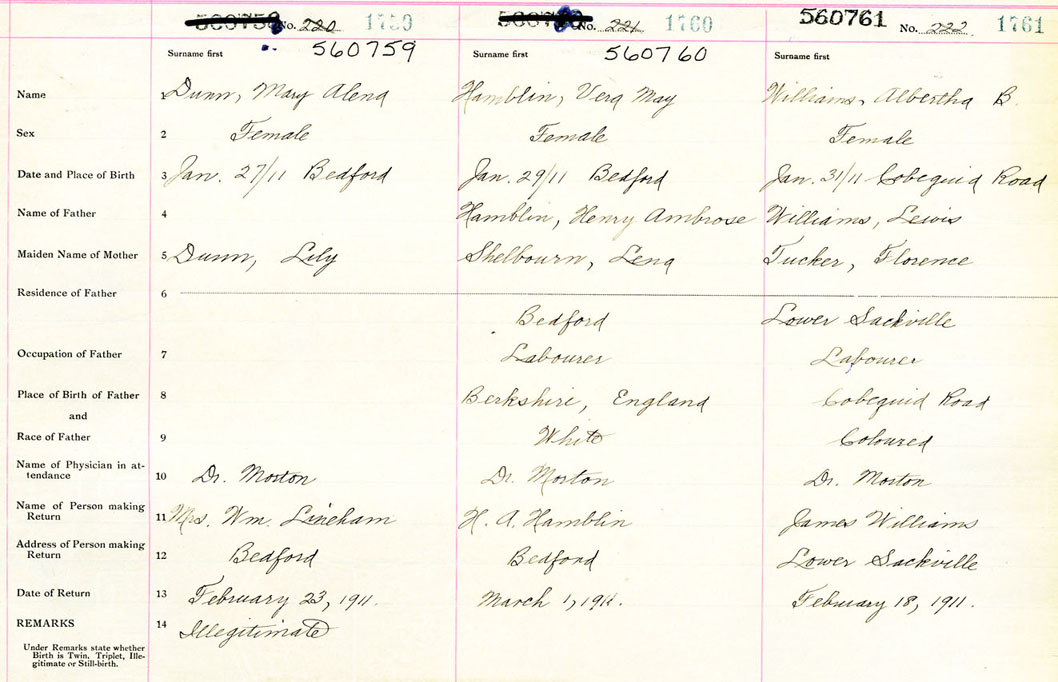 No. 220 1759 No. 221 1760 560761 No. 222 1761
Surname first 560759 Surname first 560760 Surname first
Name 1 Dunn, Mary Alena Hamblin, Vera May Williams, Albertha B.
Sex 2 Female Female Female
Date and Place of Birth 3 Jan. 27/11 Bedford Jan. 29/11 Bedford Jan. 31/11 Cobequid Road
Name of Father 4 Hamblin, Henry Ambrose Williams, Lewis
Maiden Name of Mother 5 Dunn, Lily Shelbourn, Lena Tucker, Florence
Residence of Father 6
Bedford Lower Sackville
Occupation of Father 7 Labourer Labourer
Place of Birth of Father 8 Berkshire, England Cobequid Road
and
Race of Father 9 White Coloured
Name of Physician in at-
tendance 10 Dr. Morton Dr. Morton Dr. Morton
Name of Person making
Return 11 Mrs. Wm. Lineham H. A. Hamblin James Williams
Address of Person making
Return 12 Bedford Bedford Lower Sackville
Date of Return 13 February 23, 1911. March 1, 1911. February 18, 1911.
REMARKS 14 Illegitimate
Under Remarks state whether
Birth is Twin, Triplet, Ille-
gitimate or Still-birth.